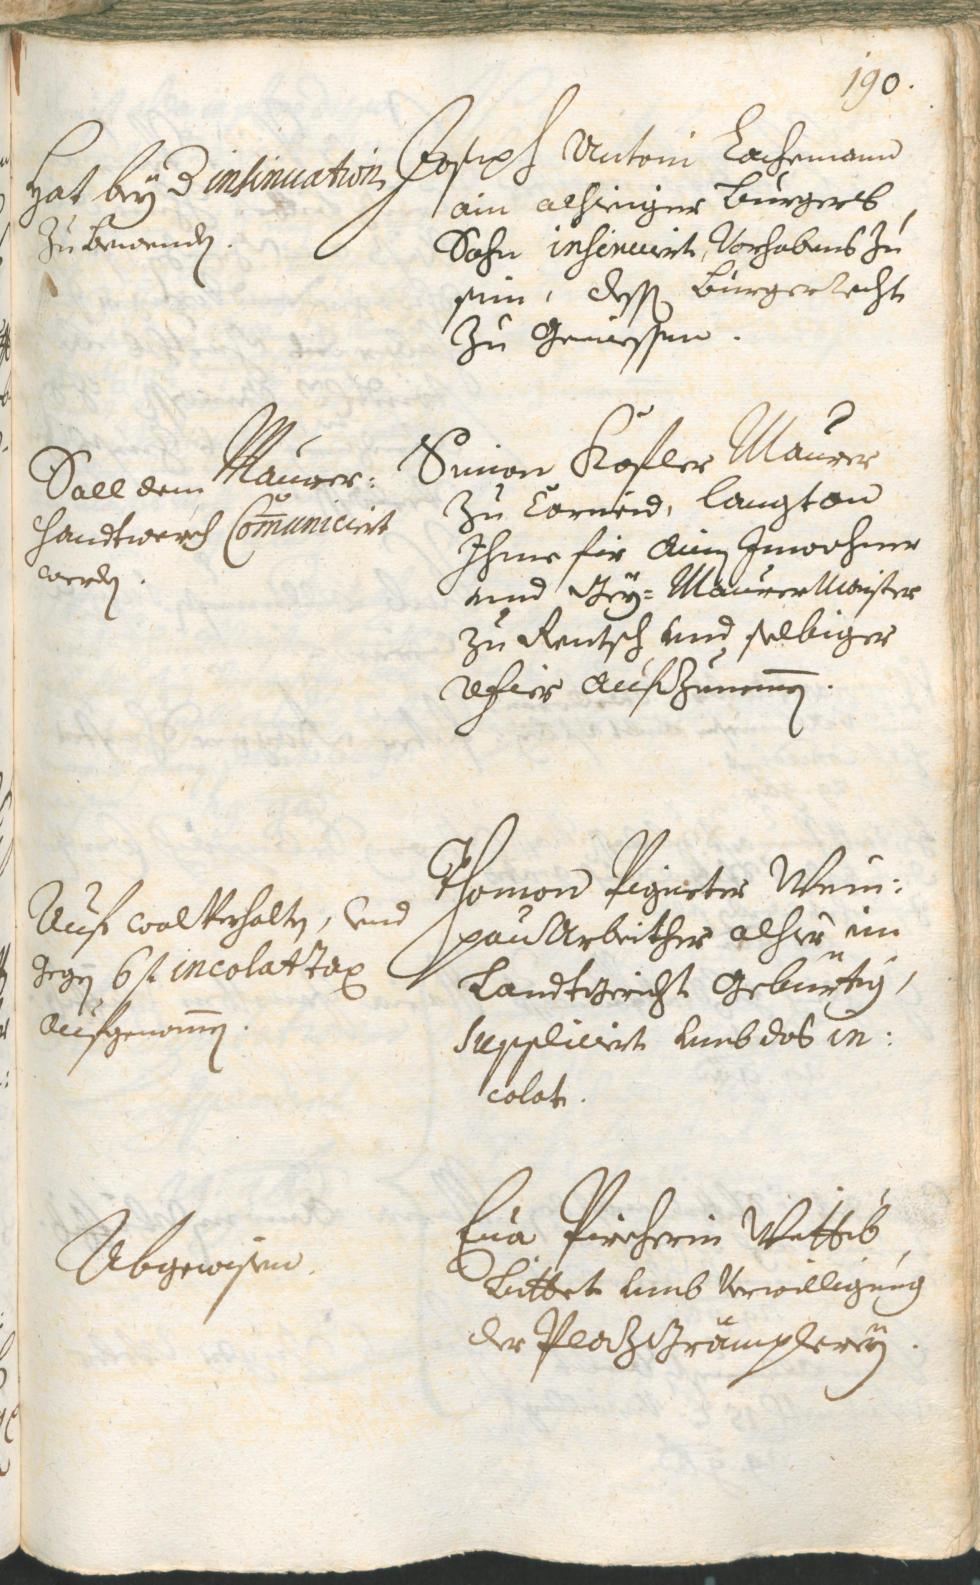 190.
Hat bey d insinuation
zu bewenden.
Joseph Antoni Lachemann
ain alhieiger Burgers
Sohn insinuirt, Vorhabens zu
sein, dess Burgerrecht
zu geniessen.
Soll dem Maurer:
handtwerch Comunicirt
werden.
Simon Kofler Maurer
zu Carneid, langt an
Ihme fir ainen Inwohner
und Bey= Maurer Maister
zu Rentsch und selbiger
Refier aufzunemen.
Auf wolVerhalten, und
gegen 6 f incolat Tax
aufgenomen.
Thoman Pigneter Wein:
pauArbeither alhier im
Landtgericht gebürtig,
supplicirt umb das in:
colat.
Abgewisen.
Eva Pircherin Wittib,
bittet umb Verwilligung
der PlazGrämplerey.